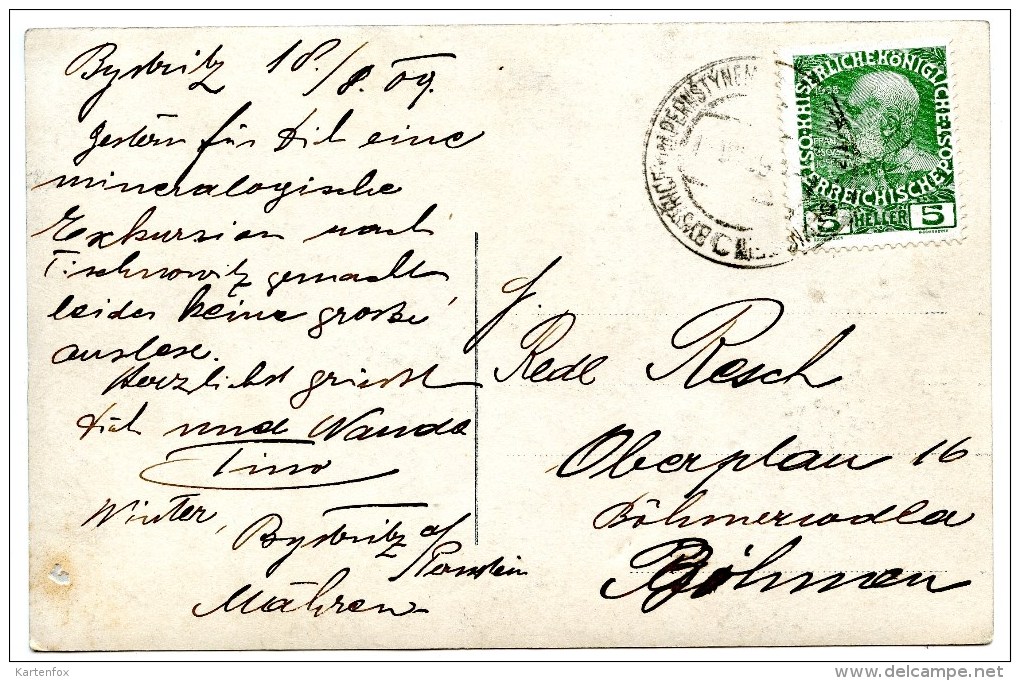 Bystritz 18./8. 09.
Gestern für dich eine
mineralogische
Exkursion nach
Tischnowitz gemacht,
leider keine große
auslese.
Herzlichst grüsst
dich und Wanda
Tino
Winter,
Bystritz a/
Pernstein
Mähren
BYSTŘICE PERNŠTÝNEM
KAISERLICHE KÖNIGLICHE
ÖSTERREICHISCHE POST
1908
5 HELLER 5
Resch
Oberplau 16
Böhmerwald
Böhmen
Kartenfox
www.delcampe.net